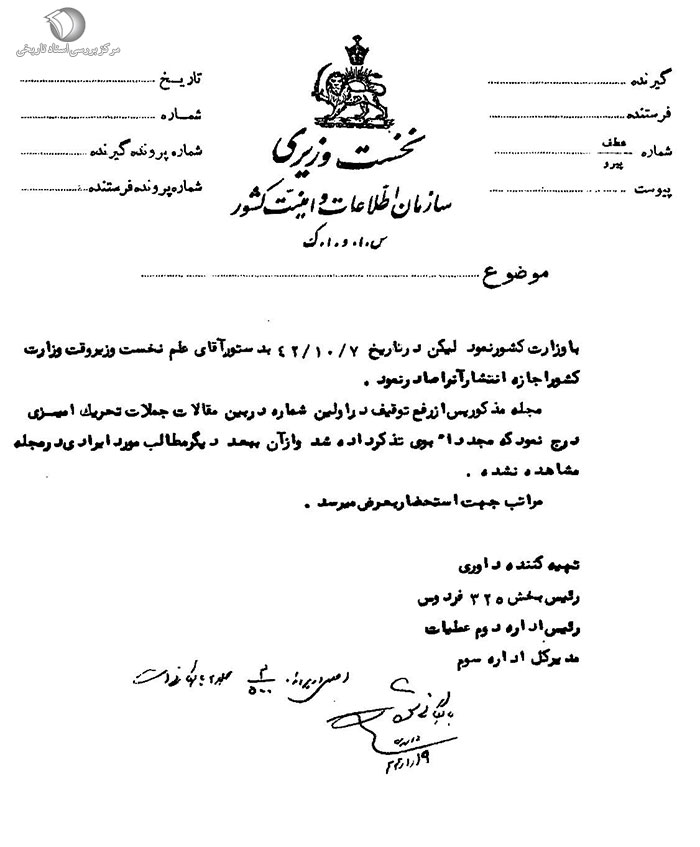 مرکز بررسی اسناد تاریخی
گیرنده
فرستنده
شماره عطف پیرو
پیوست
تاریخ
شماره
شماره پرونده گیرنده
شماره پرونده فرستنده
نخست وزیری
سازمان اطلاعات و امنیت کشور
س.ا.و.ا.ک
موضوع
با وزارت کشور نمود لیکن در تاریخ ۴۲/۱۰/۷ بدستور آقای علم نخست وزیر وقت وزارت
کشور اجازه انتشار آنرا صادر نمود .
مجله مذکور پس از رفع توقیف در اولین شماره در بین مقالات جملات تحریک امیزی
درج نمود که مجددا" بوی تذکر داده شد و از آن ببعد دیگر مطالب مورد ایرادی در مجله
مشاهده نشده .
مراتب جهت استحضار بعرض میرسد .
تهیه کننده داوری
رئیس بخش ۳۲۵ فردوس
رئیس اداره دوم عملیات
مدیرکل اداره سوم